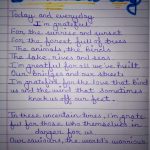 Today and everyday
I'm grateful
For the sunrise and sunset
For the forest full of trees
The animals, the birds
The lakes, rivers and seas
I'm grateful for all we've built
Our bridges and our streets
I'm grateful for the love that bind
us and the wind that sometimes
knocks off our feet.
In these uncertain times, i'm grate
ful for those who themselves in
danger for us
Our saviours, the world's warriors.